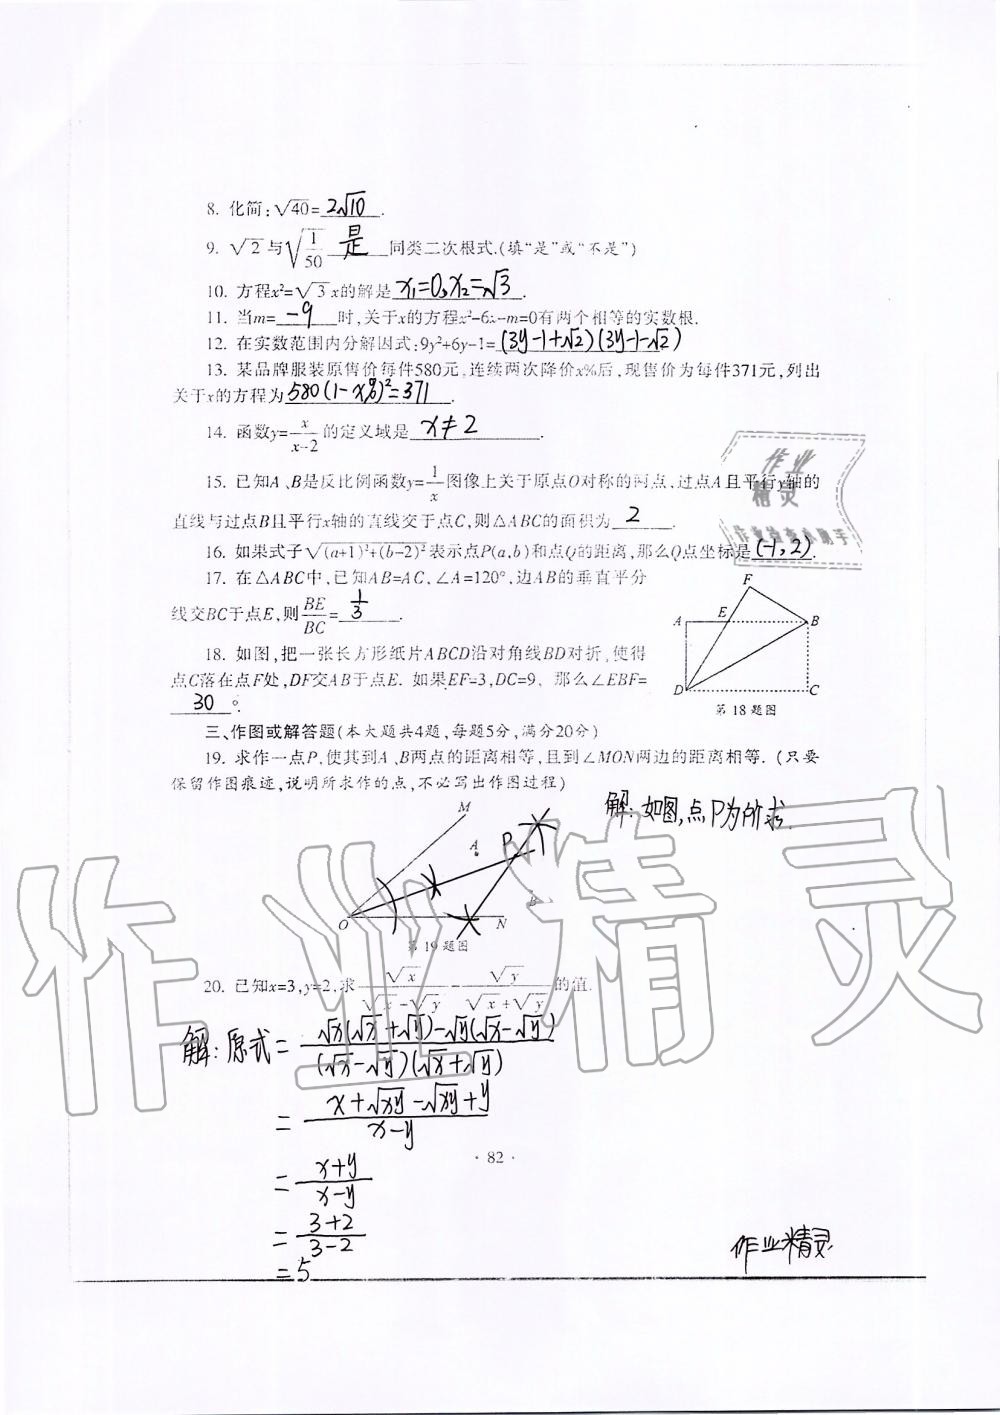 8. 化简:√40=2√10.
9. √2与√(1/50) 是 同类二次根式.(填“是”或“不是”)
10. 方程x²=√3x的解是x₁=0,x₂=√3.
11. 当m=-9时,关于x的方程x²-6x-m=0有两个相等的实数根.
12. 在实数范围内分解因式:9y²+6y-1=(3y-1+√2)(3y-1-√2)
13. 某品牌服装原售价每件580元,连续两次降价x%后,现售价为每件371元,列出
关于x的方程为580(1-x%)²=371.
14. 函数y=x/(x-2)的定义域是x≠2.
15. 已知A、B是反比例函数y=1/x图像上关于原点O对称的两点,过点A且平行y轴的
直线与过点B且平行x轴的直线交于点C,则△ABC的面积为2.
16. 如果式子√((a+1)²+(b-2)²)表示点P(a,b)和点Q的距离,那么Q点坐标是(-1,2).
17. 在△ABC中,已知AB=AC,∠A=120°,边AB的垂直平分
线交BC于点E,则BE/BC=1/3.
18. 如图,把一张长方形纸片ABCD沿对角线BD对折,使得
点C落在点F处,DF交AB于点E. 如果EF=3,DC=9、那么∠EBF=
30°.
F
A E B
D C
第18题图
三、作图或解答题(本大题共4题,每题5分,满分20分)
19. 求作一点P,使其到A、B两点的距离相等,且到∠MON两边的距离相等. (只要
保留作图痕迹,说明所求作的点,不必写出作图过程)
解:如图,点P为所求.
M
A P
B
O N
第19题图
20. 已知x=3,y=2,求√x/(√x-√y)-√y/(√x+√y)的值.
解:原式=(√x(√x+√y)-√y(√x-√y))/((√x-√y)(√x+√y))
=(x+√xy-√xy+y)/(x-y)
=(x+y)/(x-y)
=(3+2)/(3-2)
=5
·82·
作业精灵
作业
精灵
作业精灵